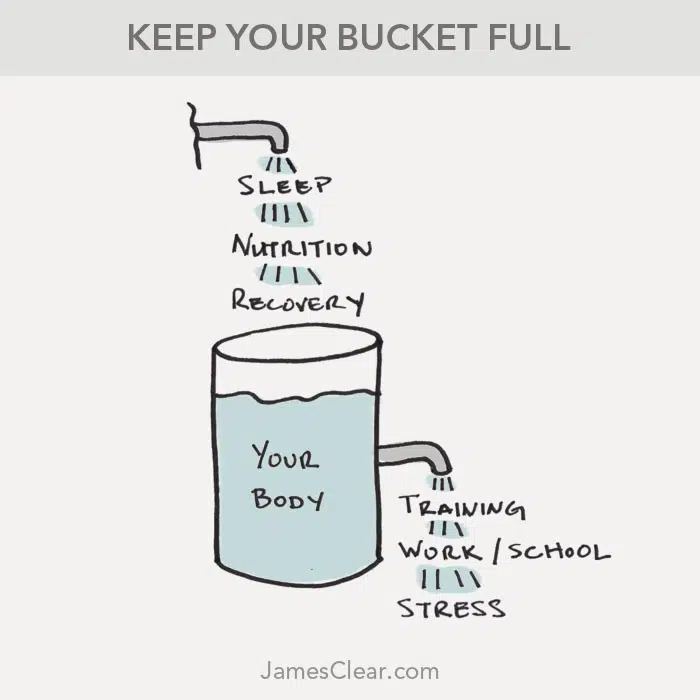 KEEP YOUR BUCKET FULL
SLEEP
NUTRITION
RECOVERY
YOUR
BODY
TRAINING
WORK / SCHOOL
STRESS
JamesClear.com